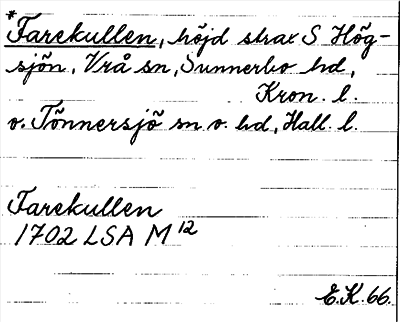 *Farekullen, höjd strax S Hög-
sjön, Vrå sn, Sunnerbo hd,
Kron. l.
o. Tönnersjö sn o. hd, Hall. l.
Farekullen
1702 LSA M 12
E.K. 66.